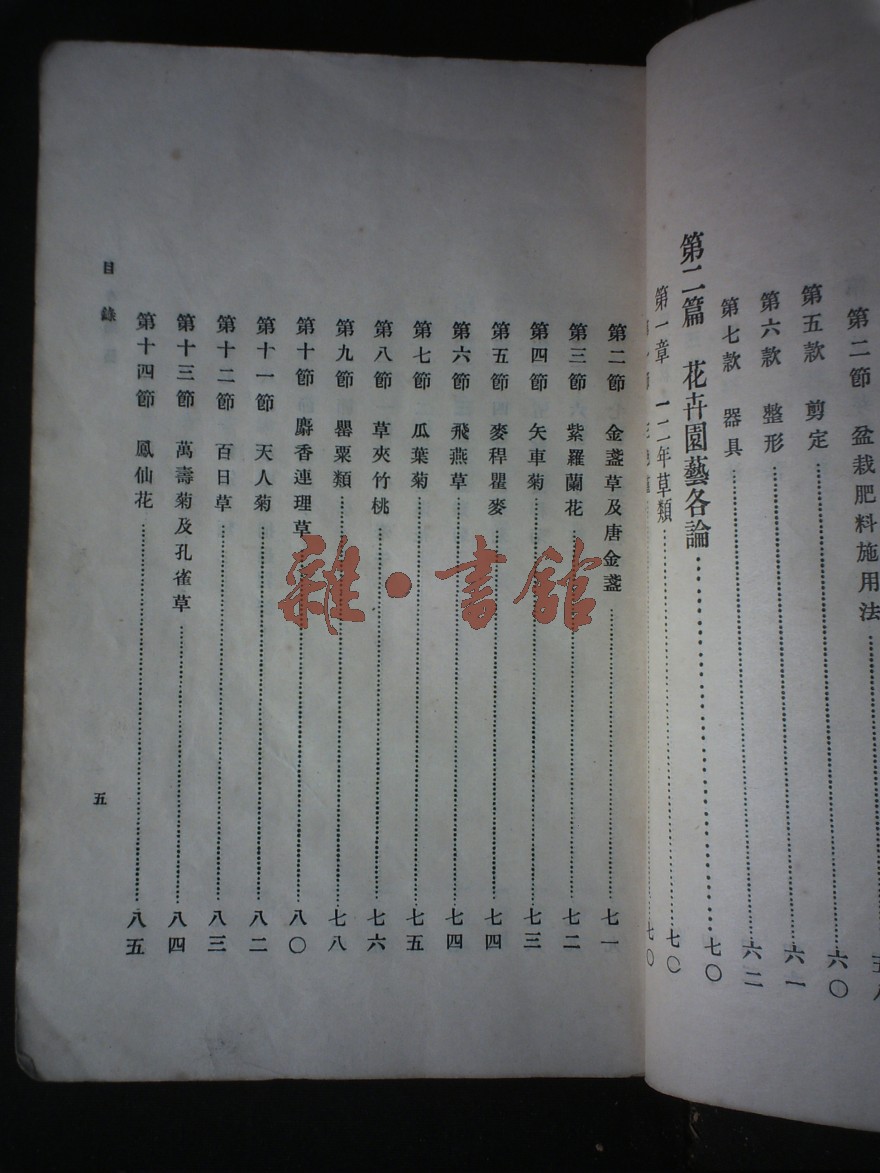 第二節　盆栽肥料施用法……五八
第五款　剪定……六〇
第六款　整形……六一
第七款　器具……六二
第二篇　花卉園藝各論……七〇
第一章　一二年草類……七〇
七〇
第二節　金盞草及唐金盞……七一
第三節　紫羅蘭花……七二
第四節　矢車菊……七三
第五節　麥稈瞿麥……七四
第六節　飛燕草……七四
第七節　瓜葉菊……七五
第八節　草夾竹桃……七六
第九節　罌粟類……七八
第十節　麝香連理草……八〇
第十一節　天人菊……八二
第十二節　百日草……八三
第十三節　萬壽菊及孔雀草……八四
第十四節　鳳仙花……八五
目錄
五
雜·書館